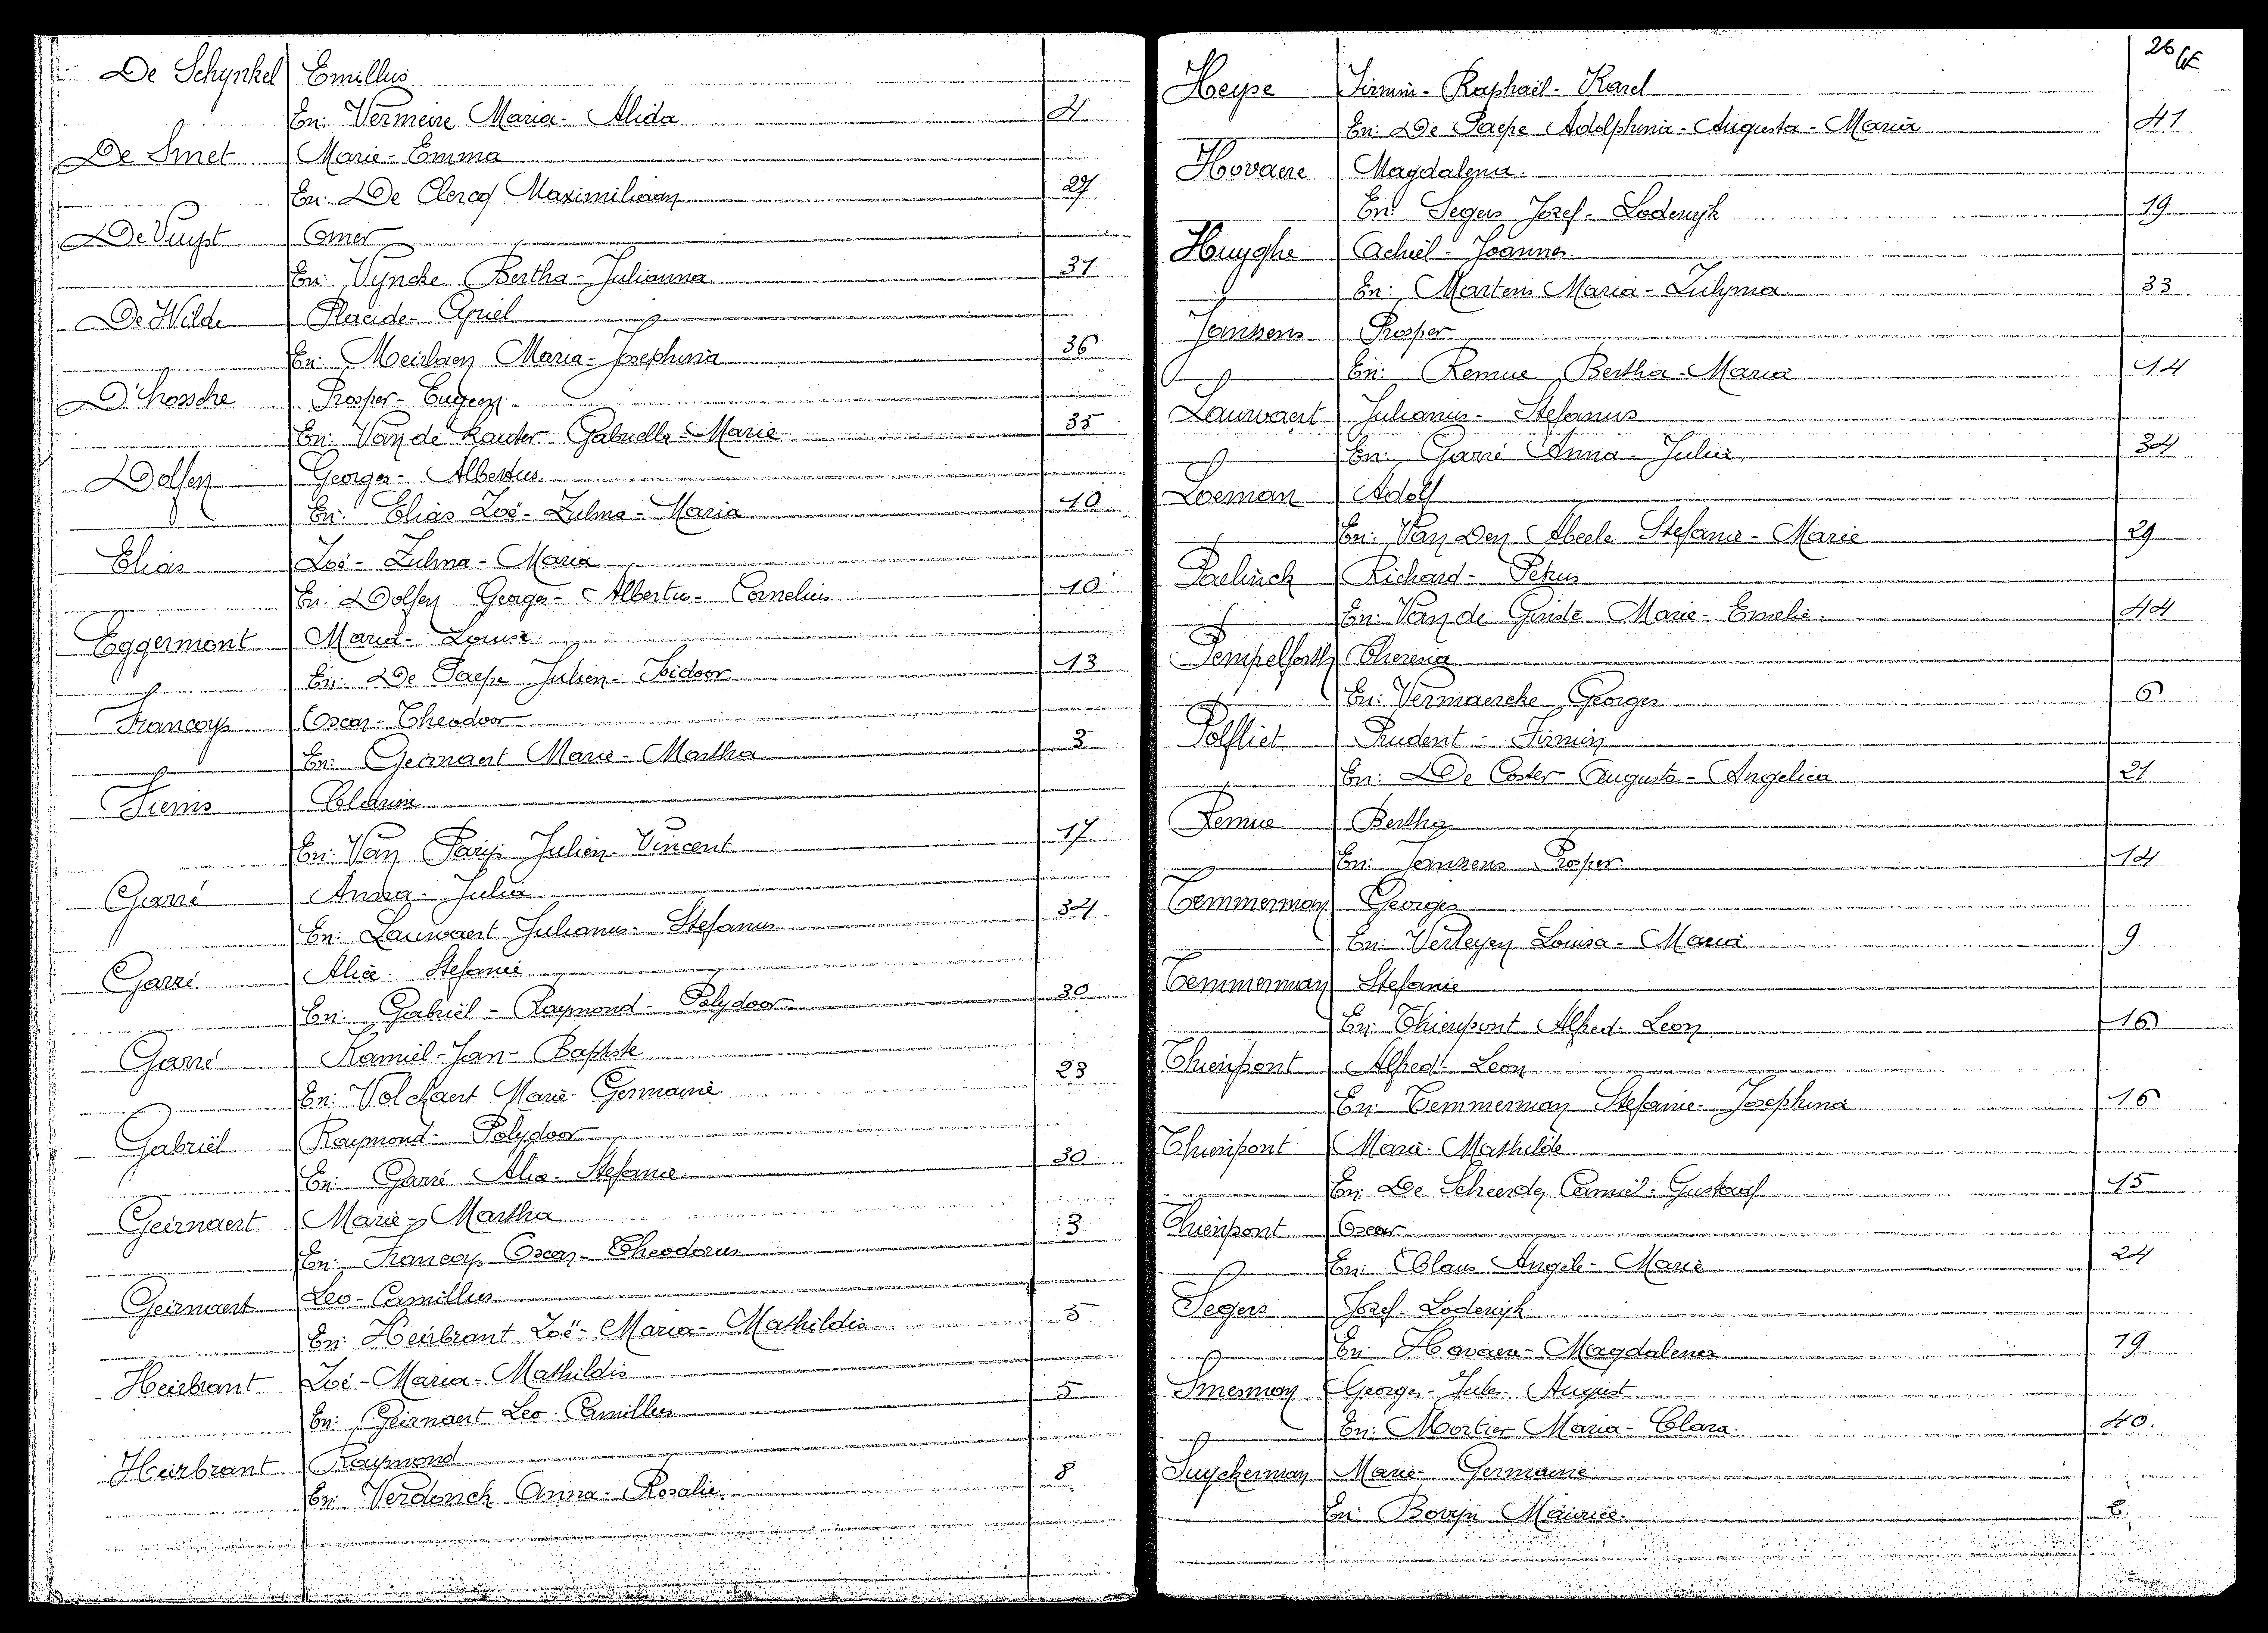 De Schynkel Emillus
En: Vermeire Maria - Alida 4
De Smet Marie - Emma
En: De Clercq Maximiliaan 27
De Vuyst Omer
En: Vyncke Bertha - Julianna 31
De Wilde Placide - Cyriel
En: Meirlaen Maria - Josephina 36
D'hossche Prosper - Eugeen
En: Van de Kauter Gabrielle - Marie 35
Dolfen Georges - Albertus
En: Elias Zoë - Zulma - Maria 10
Elias Zoë - Zulma - Maria
En: Dolfen Georges - Albertus - Cornelius 10
Eggermont Maria - Louise
En: De Paepe Julien - Isidoor 13
Francoys Oscar - Theodoor
En: Geirnaert Marie - Martha 3
Fiems Clarisse
En: Van Parijs Julien - Vincent 17
Garré Anna - Julia
En: Lauwaert Julianus - Stefanus 34
Garré Alice - Stefanie
En: Gabriël - Raymond - Polydoor 30
Garré Kamiel - Jan - Baptiste
En: Volckaert Marie - Germaine 23
Gabriël Raymond - Polydoor
En: Garré Alice - Stefanie 30
Geirnaert Marie - Martha
En: Francoys Oscar - Theodorus 3
Geirnaert Leo - Camillus
En: Heirbrant Zoë - Maria - Mathildis 5
Heirbrant Zoë - Maria - Mathildis
En: Geirnaert Leo - Camillus 5
Heirbrant Raymond
En: Verdonck Anna - Rosalie 8
26
Heyse Firmin - Raphaël - Karel
En: De Paepe Adolphina - Augusta - Maria 41
Hovaere Magdalena
En: Segers Jozef - Lodewijk 19
Huyghe Achiel - Joannes
En: Martens Maria - Zulyma 33
Janssens Prosper
En: Remue Bertha - Maria 14
Lauwaert Julianus - Stefanus
En: Garré Anna - Julia 34
Loeman Adolf
En: Van Den Abeele Stefanie - Marie 29
Paelinck Richard - Petrus
En: Van de Ginste Marie - Emelie 44
Pempelforth Theresia
En: Vermaercke Georges 6
Polfliet Prudent - Firmin
En: De Coster Augusta - Angelica 21
Remue Bertha
En: Janssens Prosper 14
Temmerman Georges
En: Verleyen Louisa - Maria 9
Temmerman Stefanie
En: Thienpont Alfred - Leon 16
Thienpont Alfred - Leon
En: Temmerman Stefanie - Josephina 16
Thienpont Marie - Mathilde
En: De Scheerder Camiel - Gustaaf 15
Thienpont Oscar
En: Claus Angele - Marie 24
Segers Jozef - Lodewijk
En: Hovaere - Magdalena 19
Smesman Georges - Jules - August
En: Mortier Maria - Clara 40
Suyckerman Marie - Germaine
En: Bovijn Maurice 2